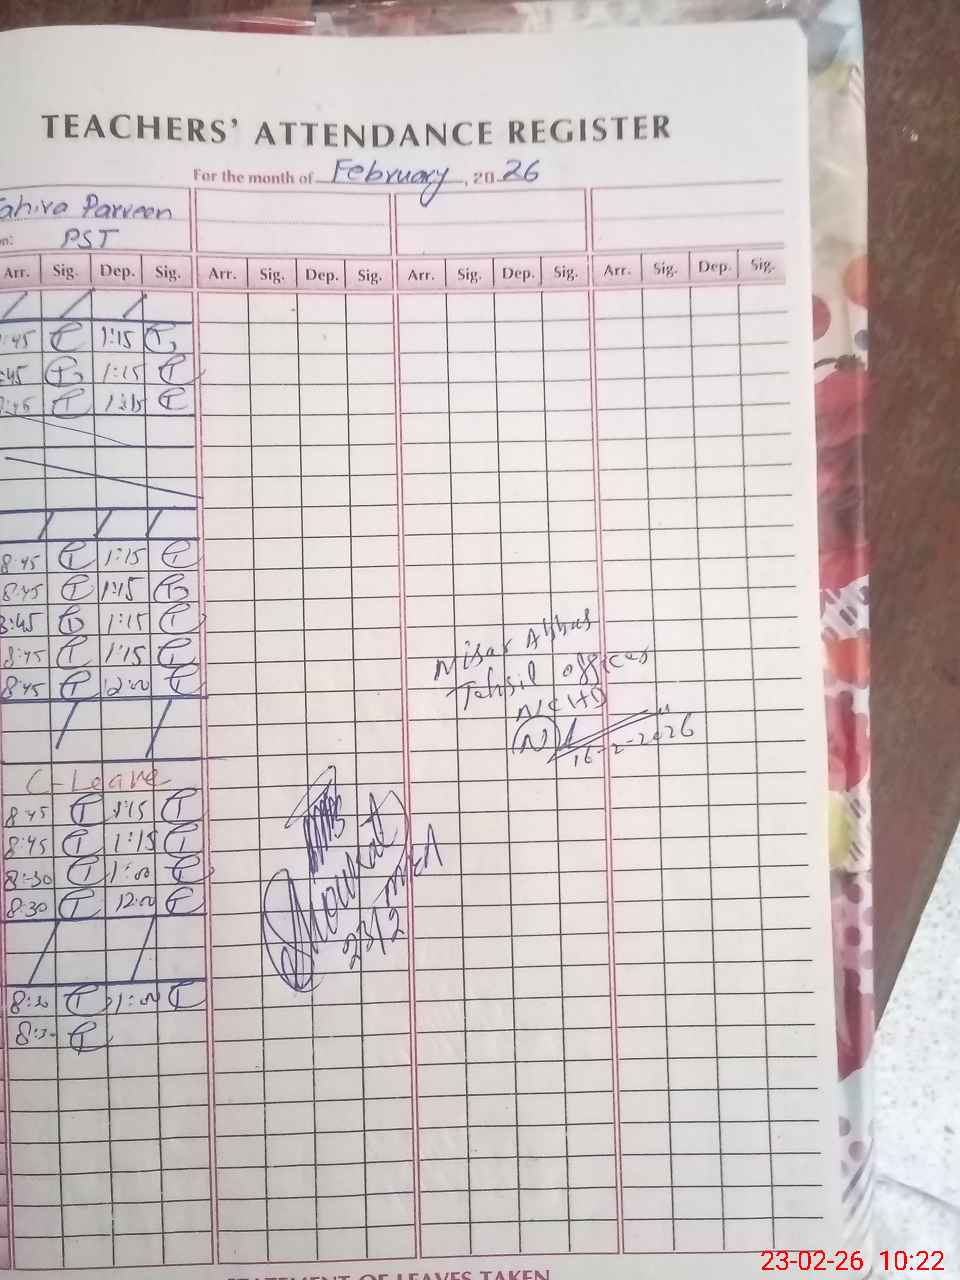 TEACHERS' ATTENDANCE REGISTER
For the month of February, 2026
Tahira Parveen
PST
Arr. Sig. Dep. Sig. Arr. Sig. Dep. Sig. Arr. Sig. Dep. Sig. Arr. Sig. Dep. Sig.
:45 T 1:15 T
:45 T 1:15 T
:45 T 1:15 T
8:45 T 1:15 T
8:45 T 1:15 T
8:45 T 1:15 T
8:45 T 1:15 T
8:45 T 12:00 T
Nisar Abbas
Tehsil officer
NCHD
16-2-2026
C-Leave
8:45 T 1:15 T
8:45 T 1:15 T
8:30 T 1:00 T
8:30 T 12:00 T
Shoukat
23/2
8:30 T 1:00 T
8:30 T
STATEMENT OF LEAVES TAKEN
23-02-26 10:22